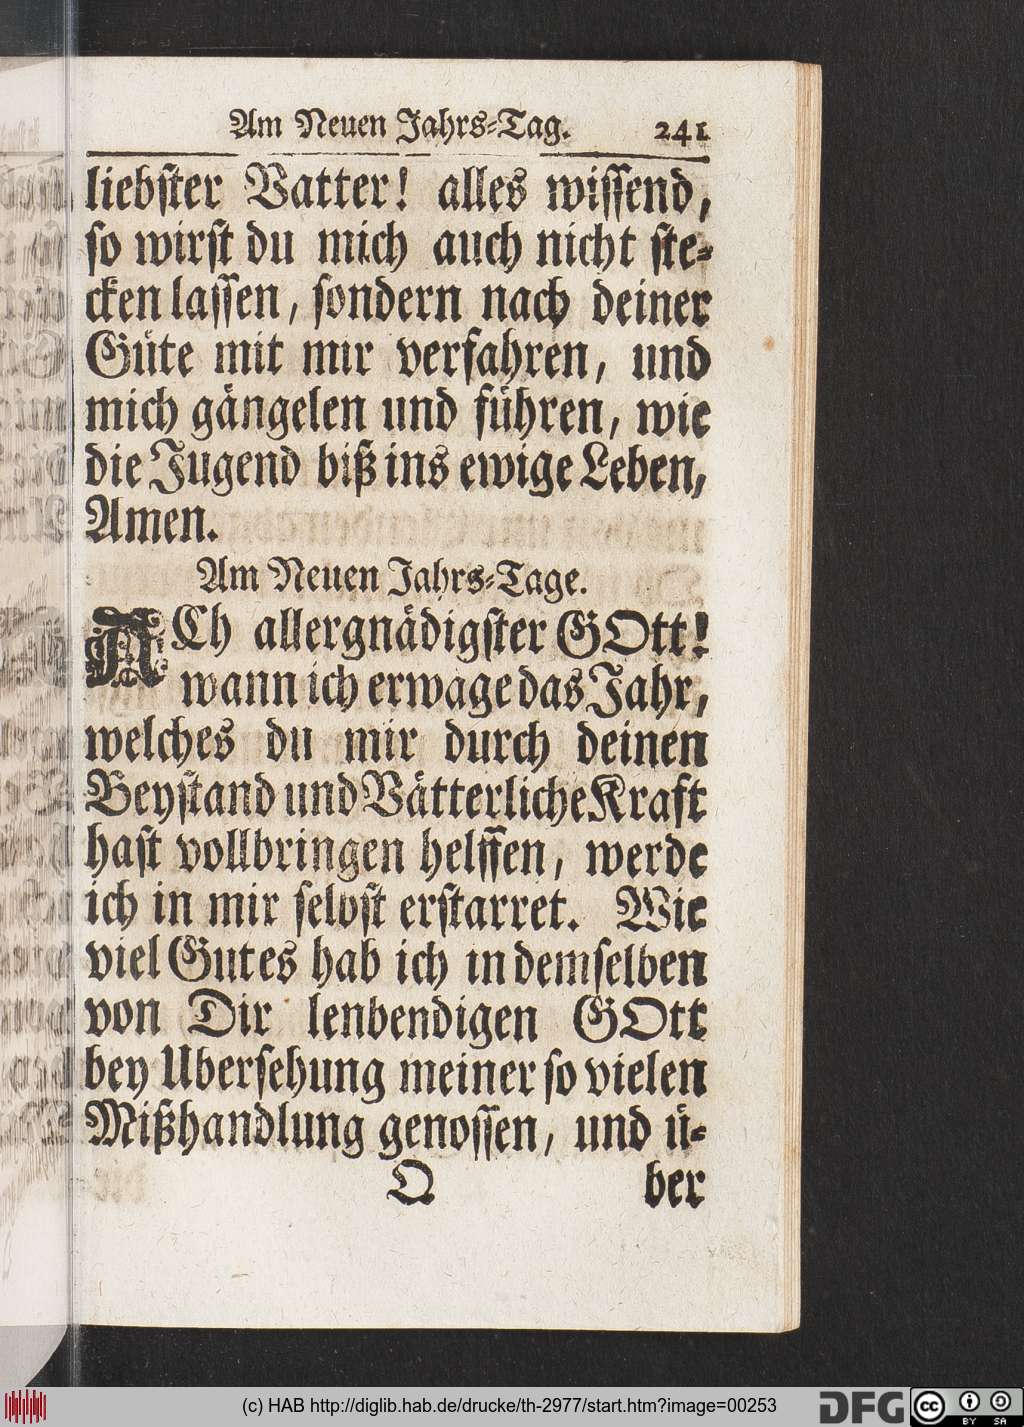 Am Neuen Jahrs-Tag. 241
liebster Vatter! alles wissend,
so wirst du mich auch nicht ste-
cken lassen, sondern nach deiner
Güte mit mir verfahren, und
mich gängelen und führen, wie
die Jugend biß ins ewige Leben,
Amen.
Am Neuen Jahrs-Tage.
ACh allergnädigster GOtt!
wann ich erwage das Jahr,
welches du mir durch deinen
Beystand und Vätterliche Kraft
hast vollbringen helffen, werde
ich in mir selbst erstarret. Wie
viel Gutes hab ich in demselben
von Dir lenbendigen GOtt
bey Ubersehung meiner so vielen
Mißhandlung genossen, und ü-
O ber
(c) HAB http://diglib.hab.de/drucke/th-2977/start.htm?image=00253
DFG
cc BY SA